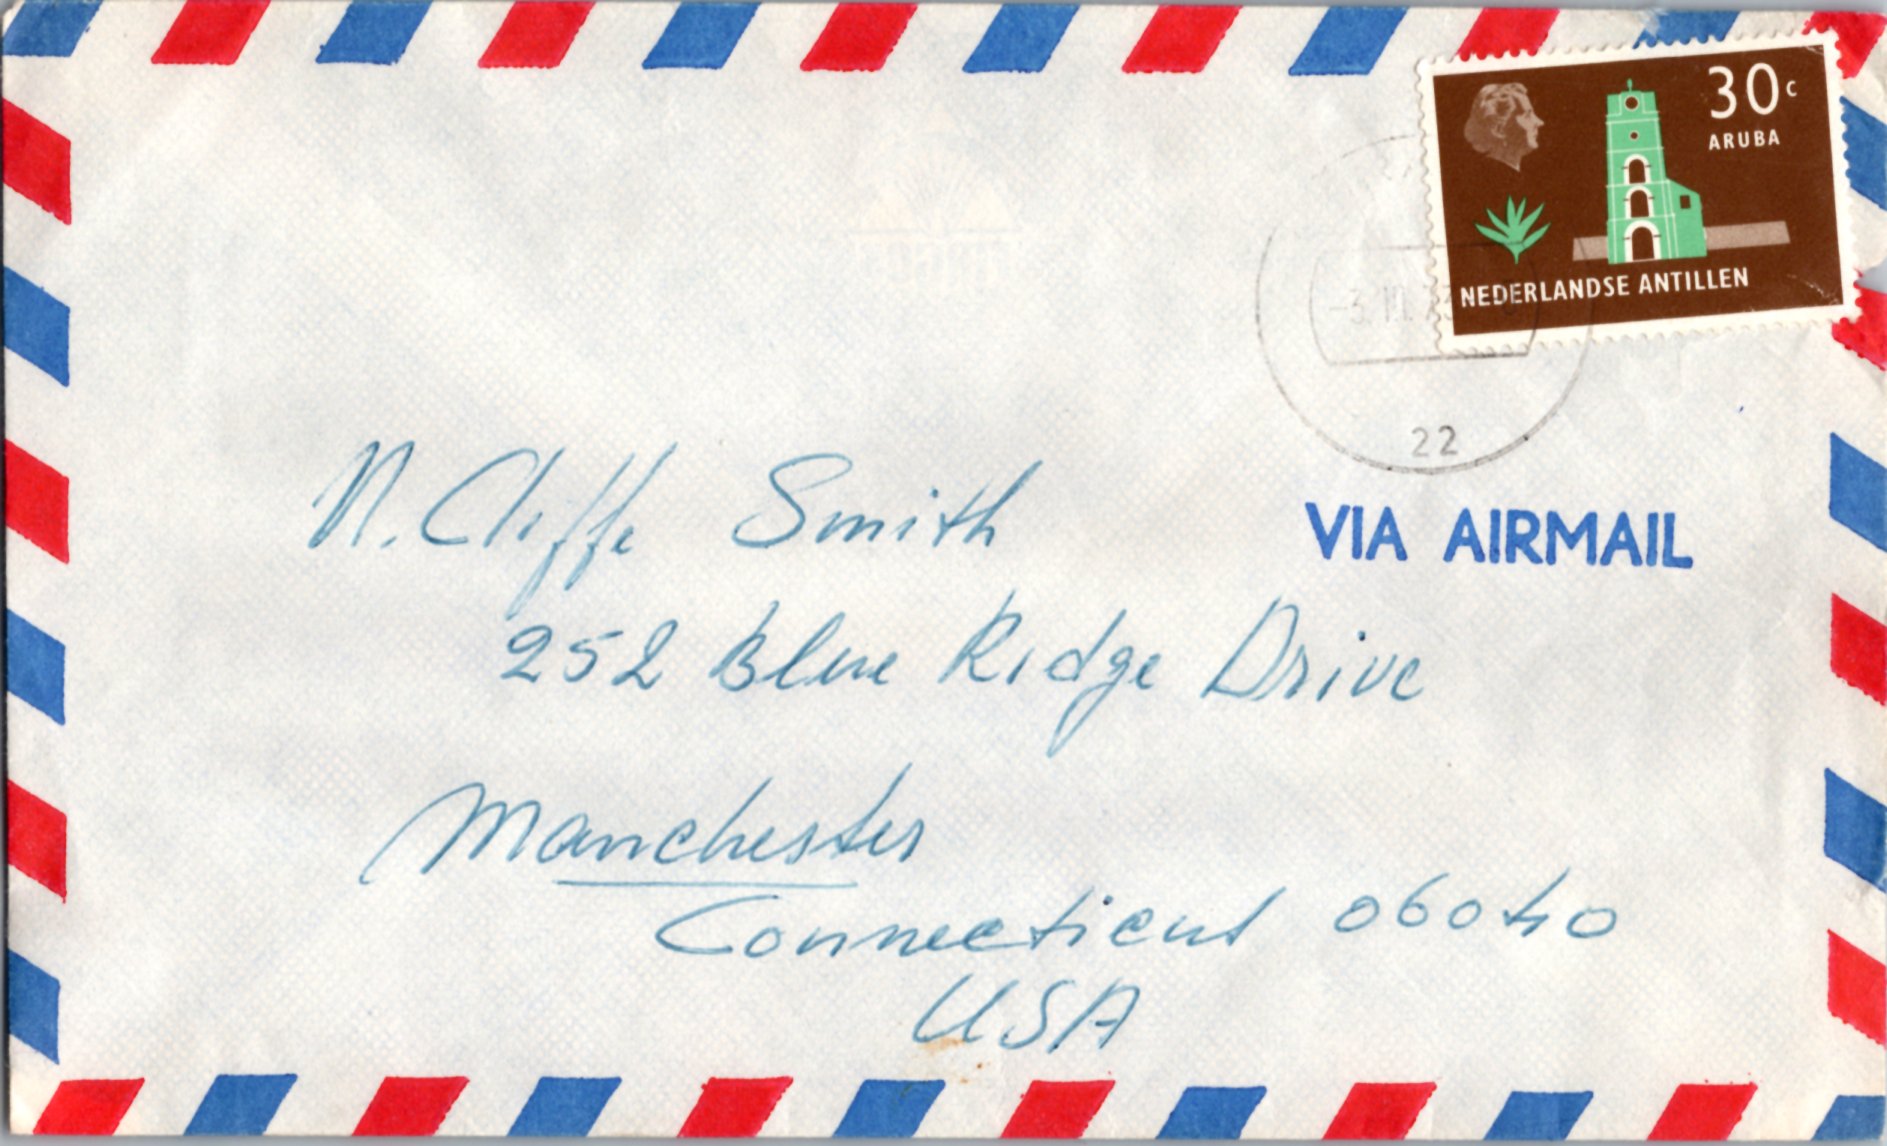 30c
ARUBA
NEDERLANDSE ANTILLEN
22
VIA AIRMAIL
N. Cliffe Smith
252 Blue Ridge Drive
Manchester
Connecticut 06040
USA